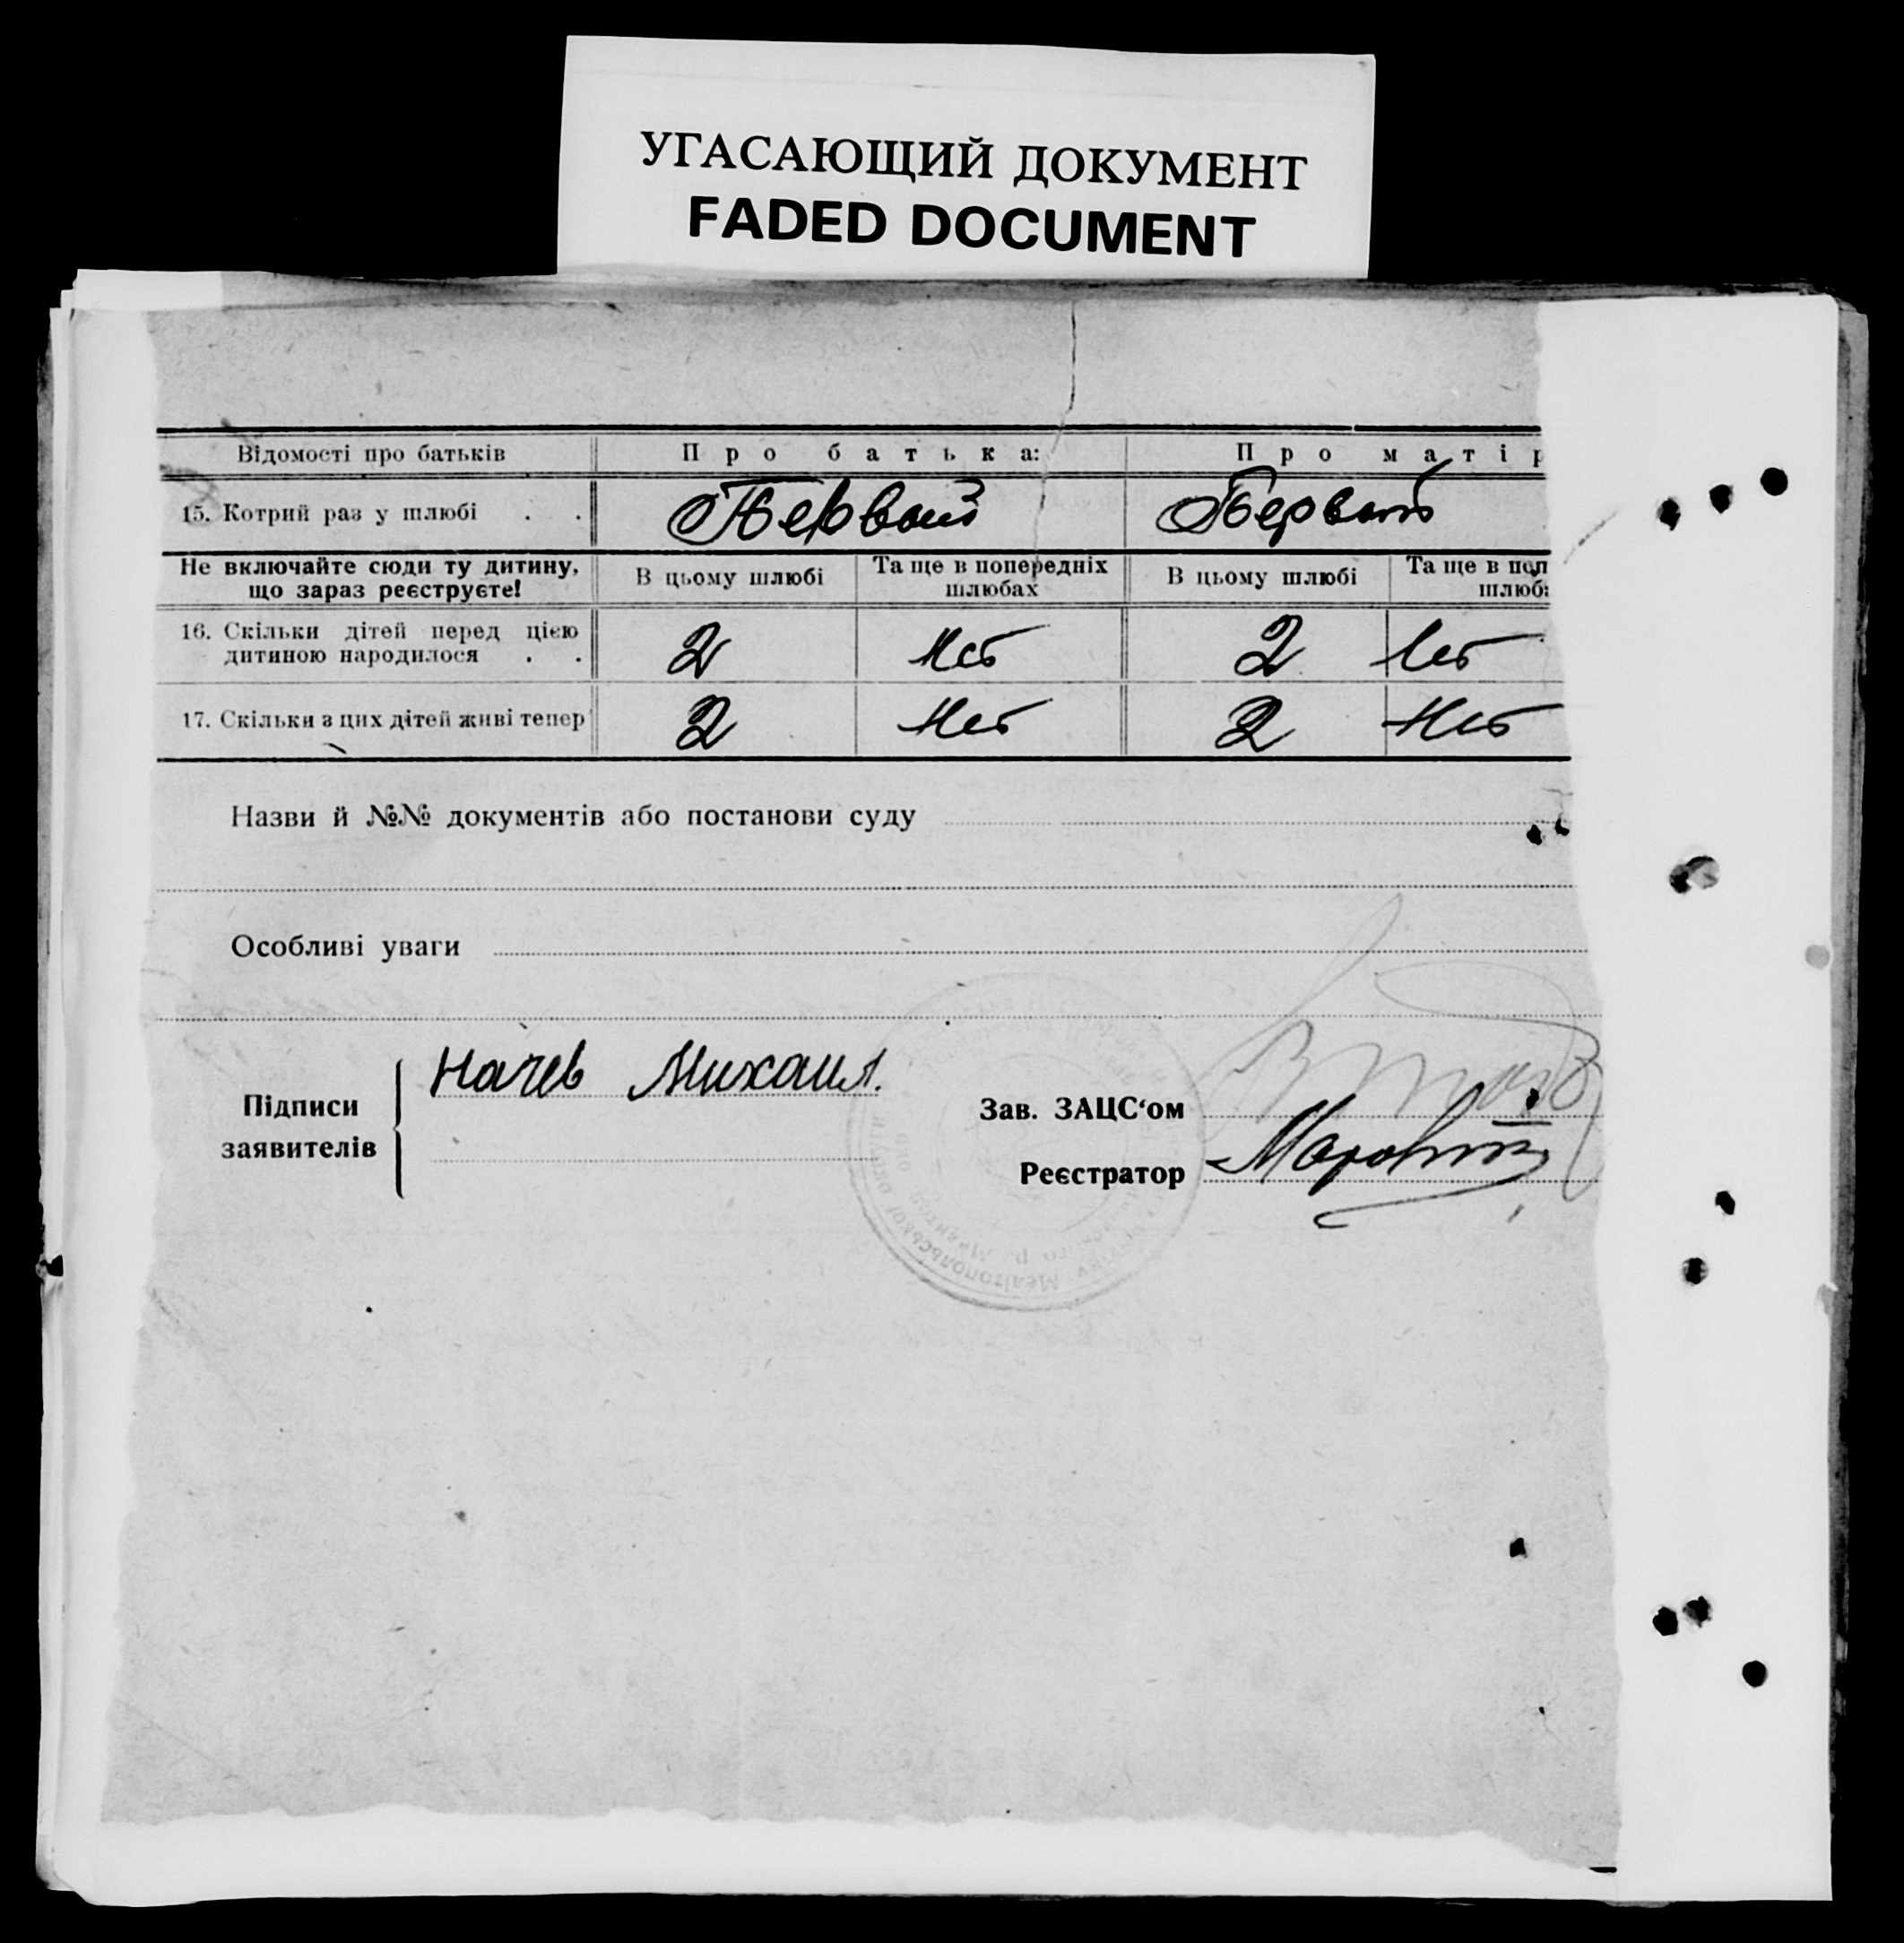 УГАСАЮЩИЙ ДОКУМЕНТ
FADED DOCUMENT
Відомості про батьків Про батька: Про матір
15. Котрий раз у шлюбі . . Первый Первый
Не включайте сюди ту дитину, що зараз реєструєте! В цьому шлюбі Та ще в попередніх шлюбах В цьому шлюбі Та ще в поп шлюб
16. Скільки дітей перед цією дитиною народилося . . 2 Нет 2 Нет
17. Скільки з цих дітей живі тепер 2 Нет 2 Нет
Назви й №№ документів або постанови суду
Особливі уваги
Підписи заявителів Начев Михаил.
Зав. ЗАЦС‘ом
Реєстратор
Мелітопольської округи